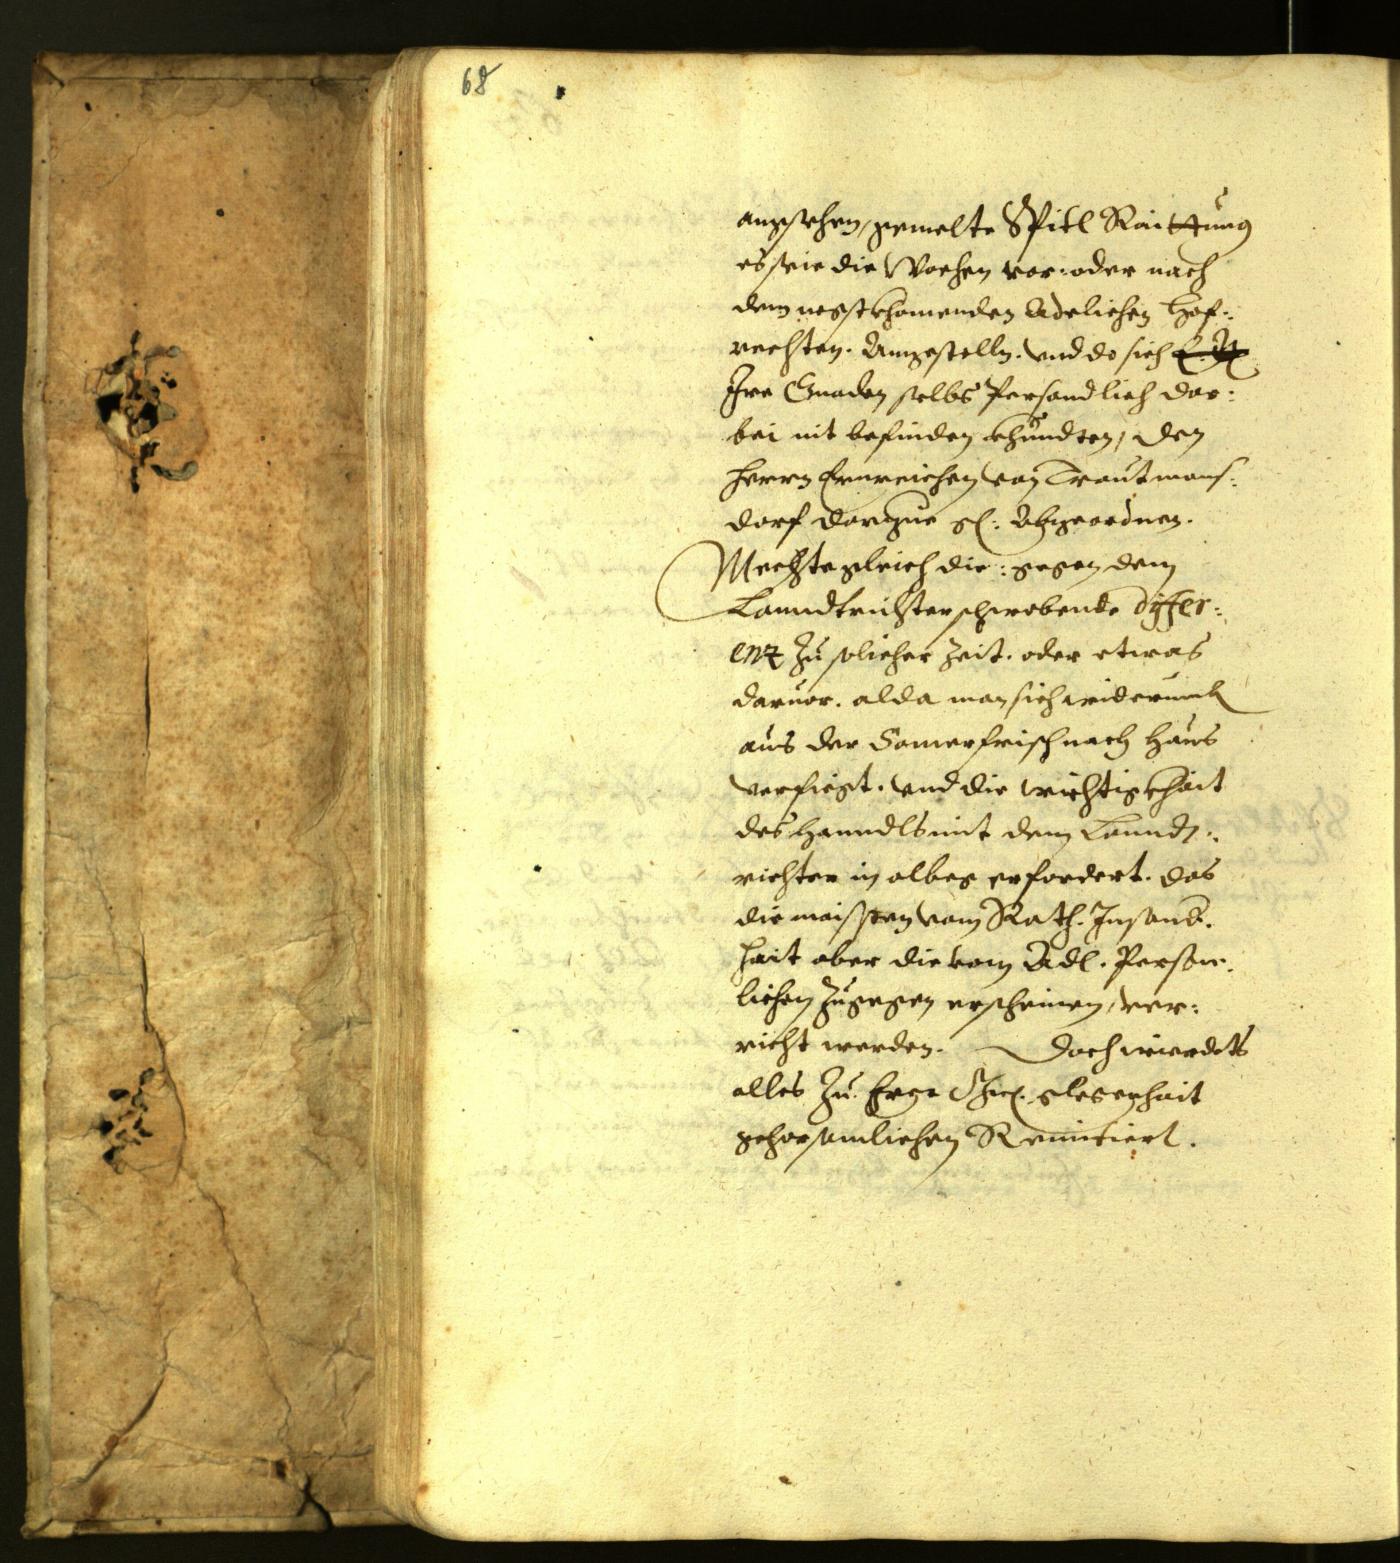 68
angesehen, gemelte Spitl Raittung
es seie die Wochen vor: oder nach
dem negstkhomenden Adelichen Hof:
rechten. Angestelln. vnd do sich
Ire Gnaden selbs Persondlich dar:
bei nit befinden khundten, den
Herrn Ernreichen von Trautmans:
dorf darzue gl: Abgeordnen.
Mechte gleich die: gegen dem
Lanndtrichter schwebende differ:
enz zu solicher Zeit. oder etwas
daruor. alda man sich widerumb
aus der Somerfrisch nach Haus
verfiegt. vnd die wichtigkhait
des Hanndls mit dem Lanndt:
richter in albeg erfordert. das
die maisten vom Rath. In
hait aber die vom Adl. Persen:
lichen zugegen erscheinen, ver:
richt werden. Doch wierdets
alles zu Herr glegenhait
gehorsamlichen Remitiert.